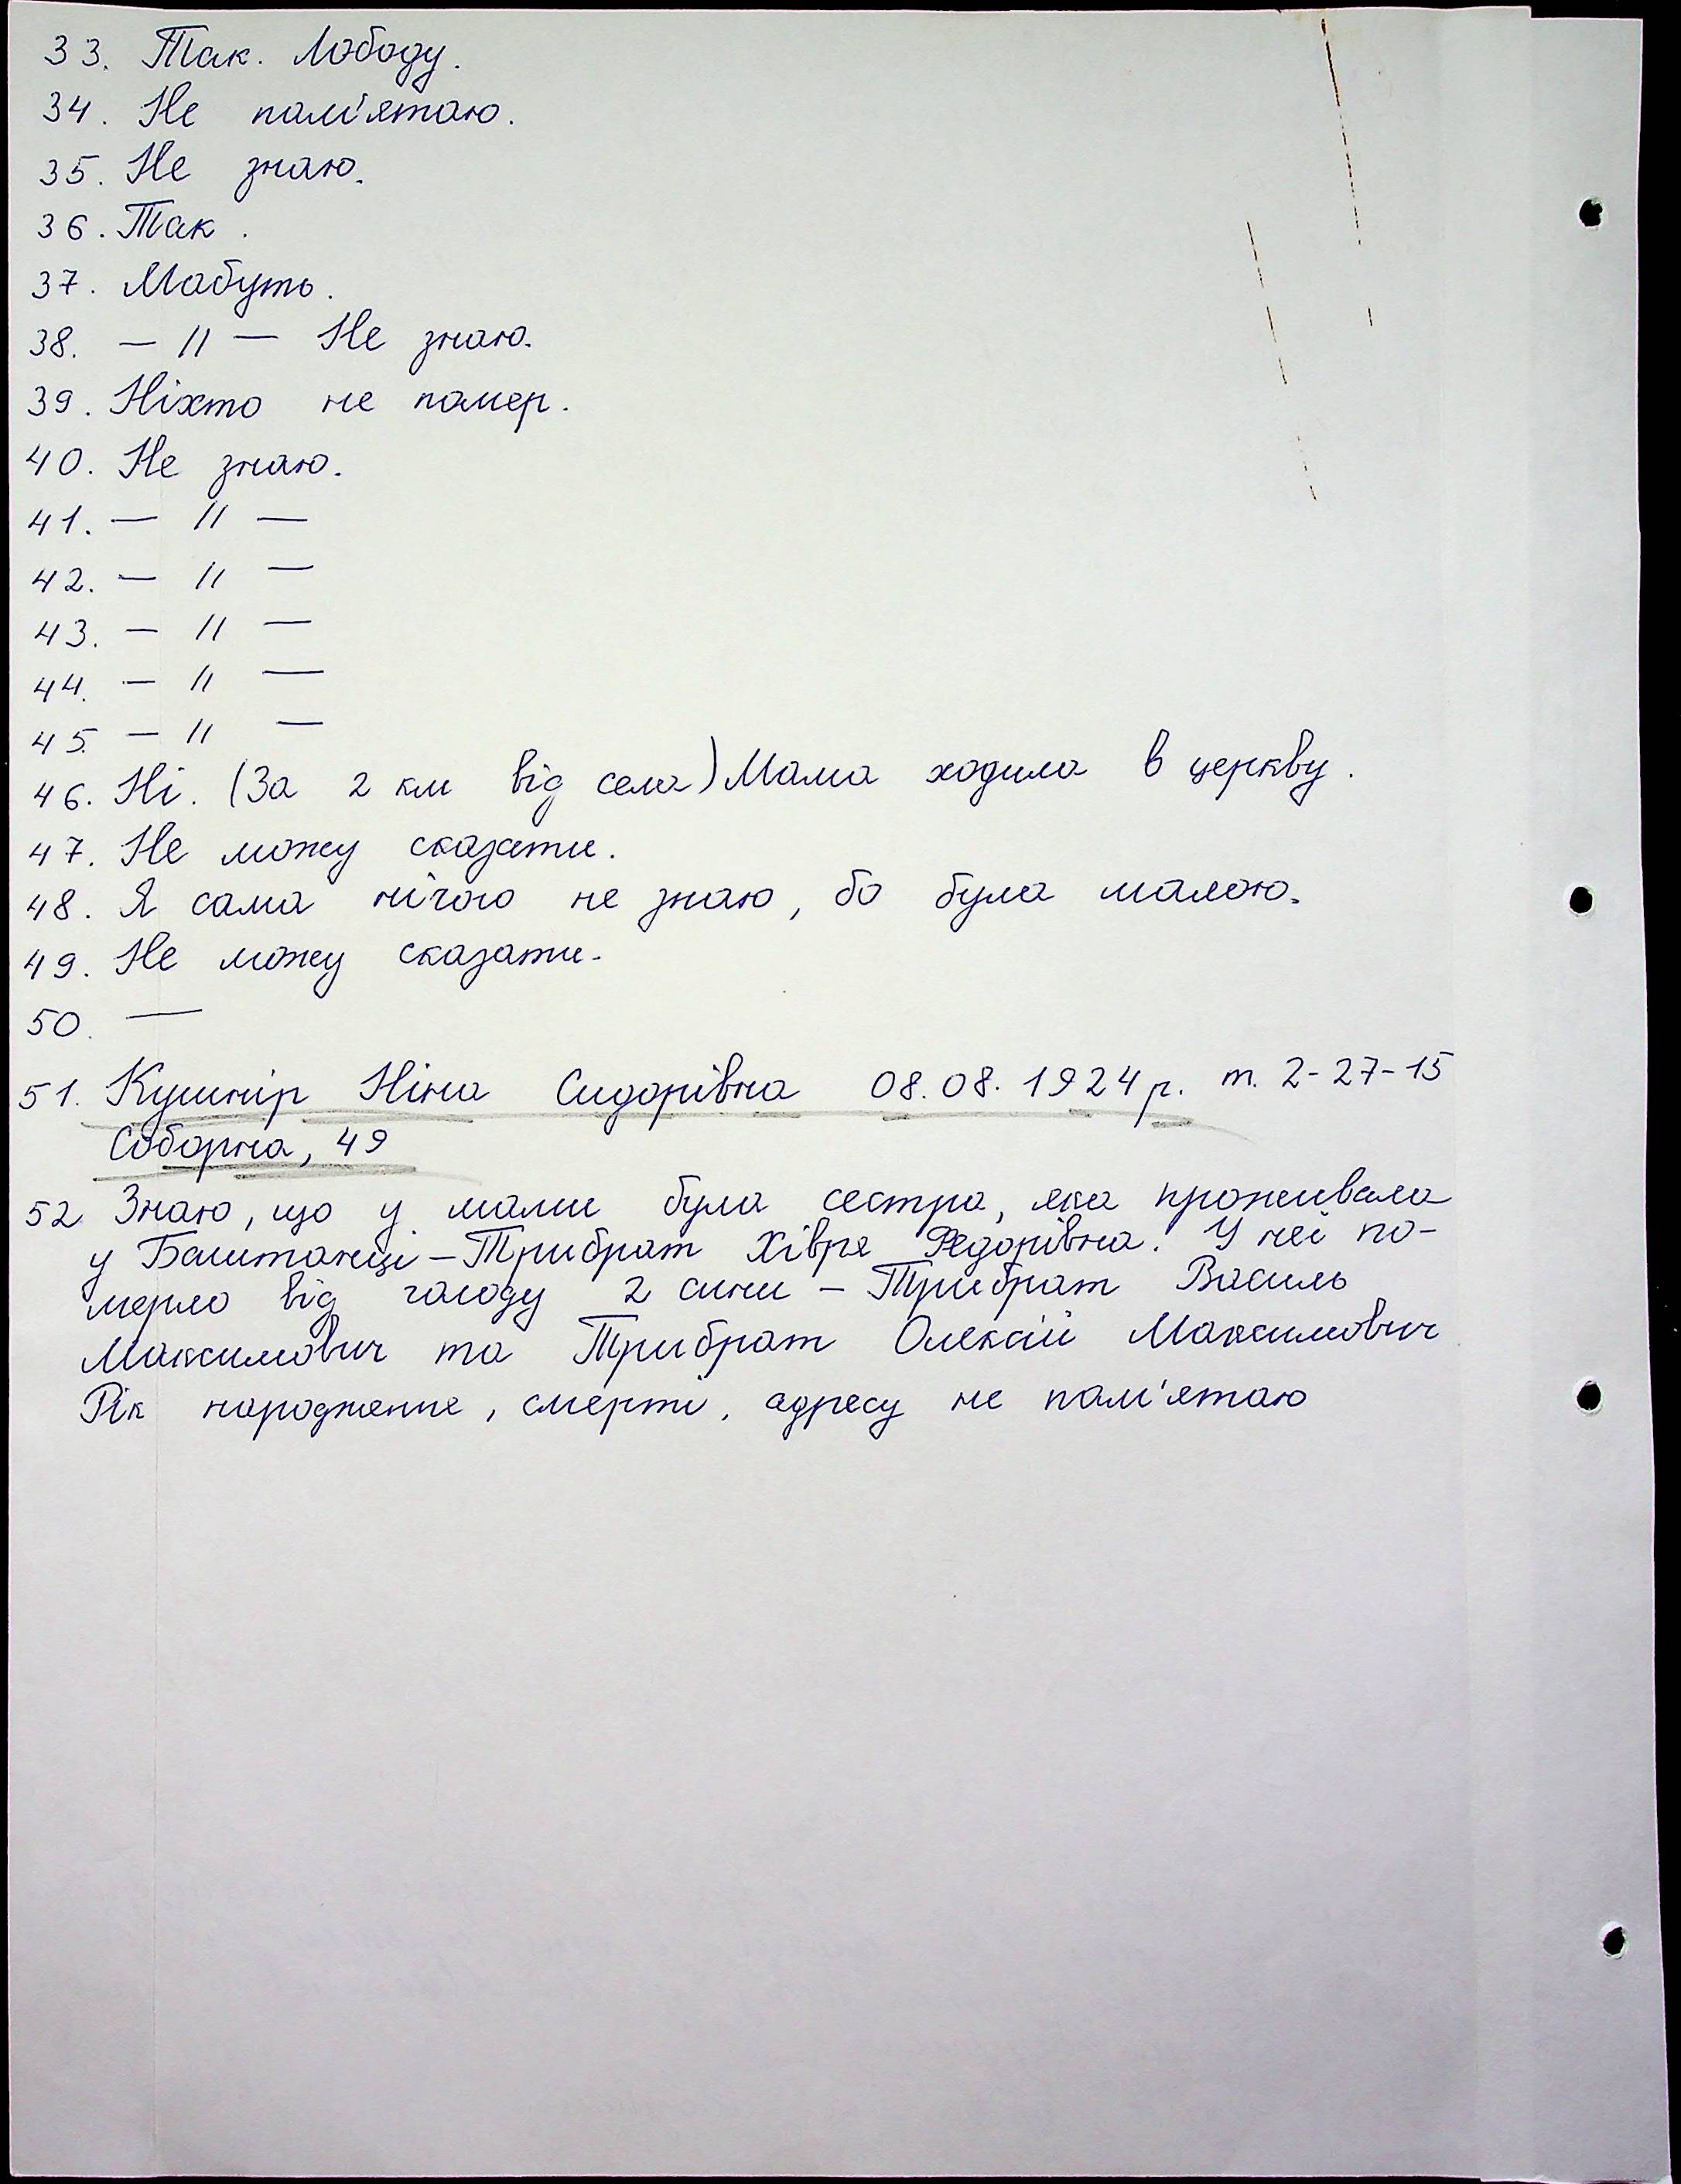 33. Так. Лободу.
34. Не пам'ятаю.
35. Не знаю.
36. Так.
37. Мабуть.
38. — || — Не знаю.
39. Ніхто не помер.
40. Не знаю.
41. — || —
42. — || —
43. — || —
44. — || —
45. — || —
46. Ні. (За 2 км від села) Мама ходила в церкву.
47. Не можу сказати.
48. Я сама нічого не знаю, бо була малою.
49. Не можу сказати.
50. —
51. Кушнір Ніна Сидорівна 08.08.1924р. т. 2-27-15
Соборна, 49
52 Знаю, що у мами була сестра, яка проживала
у Баштанці – Трибрат Хівря Федорівна. У неї по-
мерло від голоду 2 сини – Трибрат Василь
Максимович та Трибрат Олексій Максимович
Рік народження, смерті, адресу не пам'ятаю